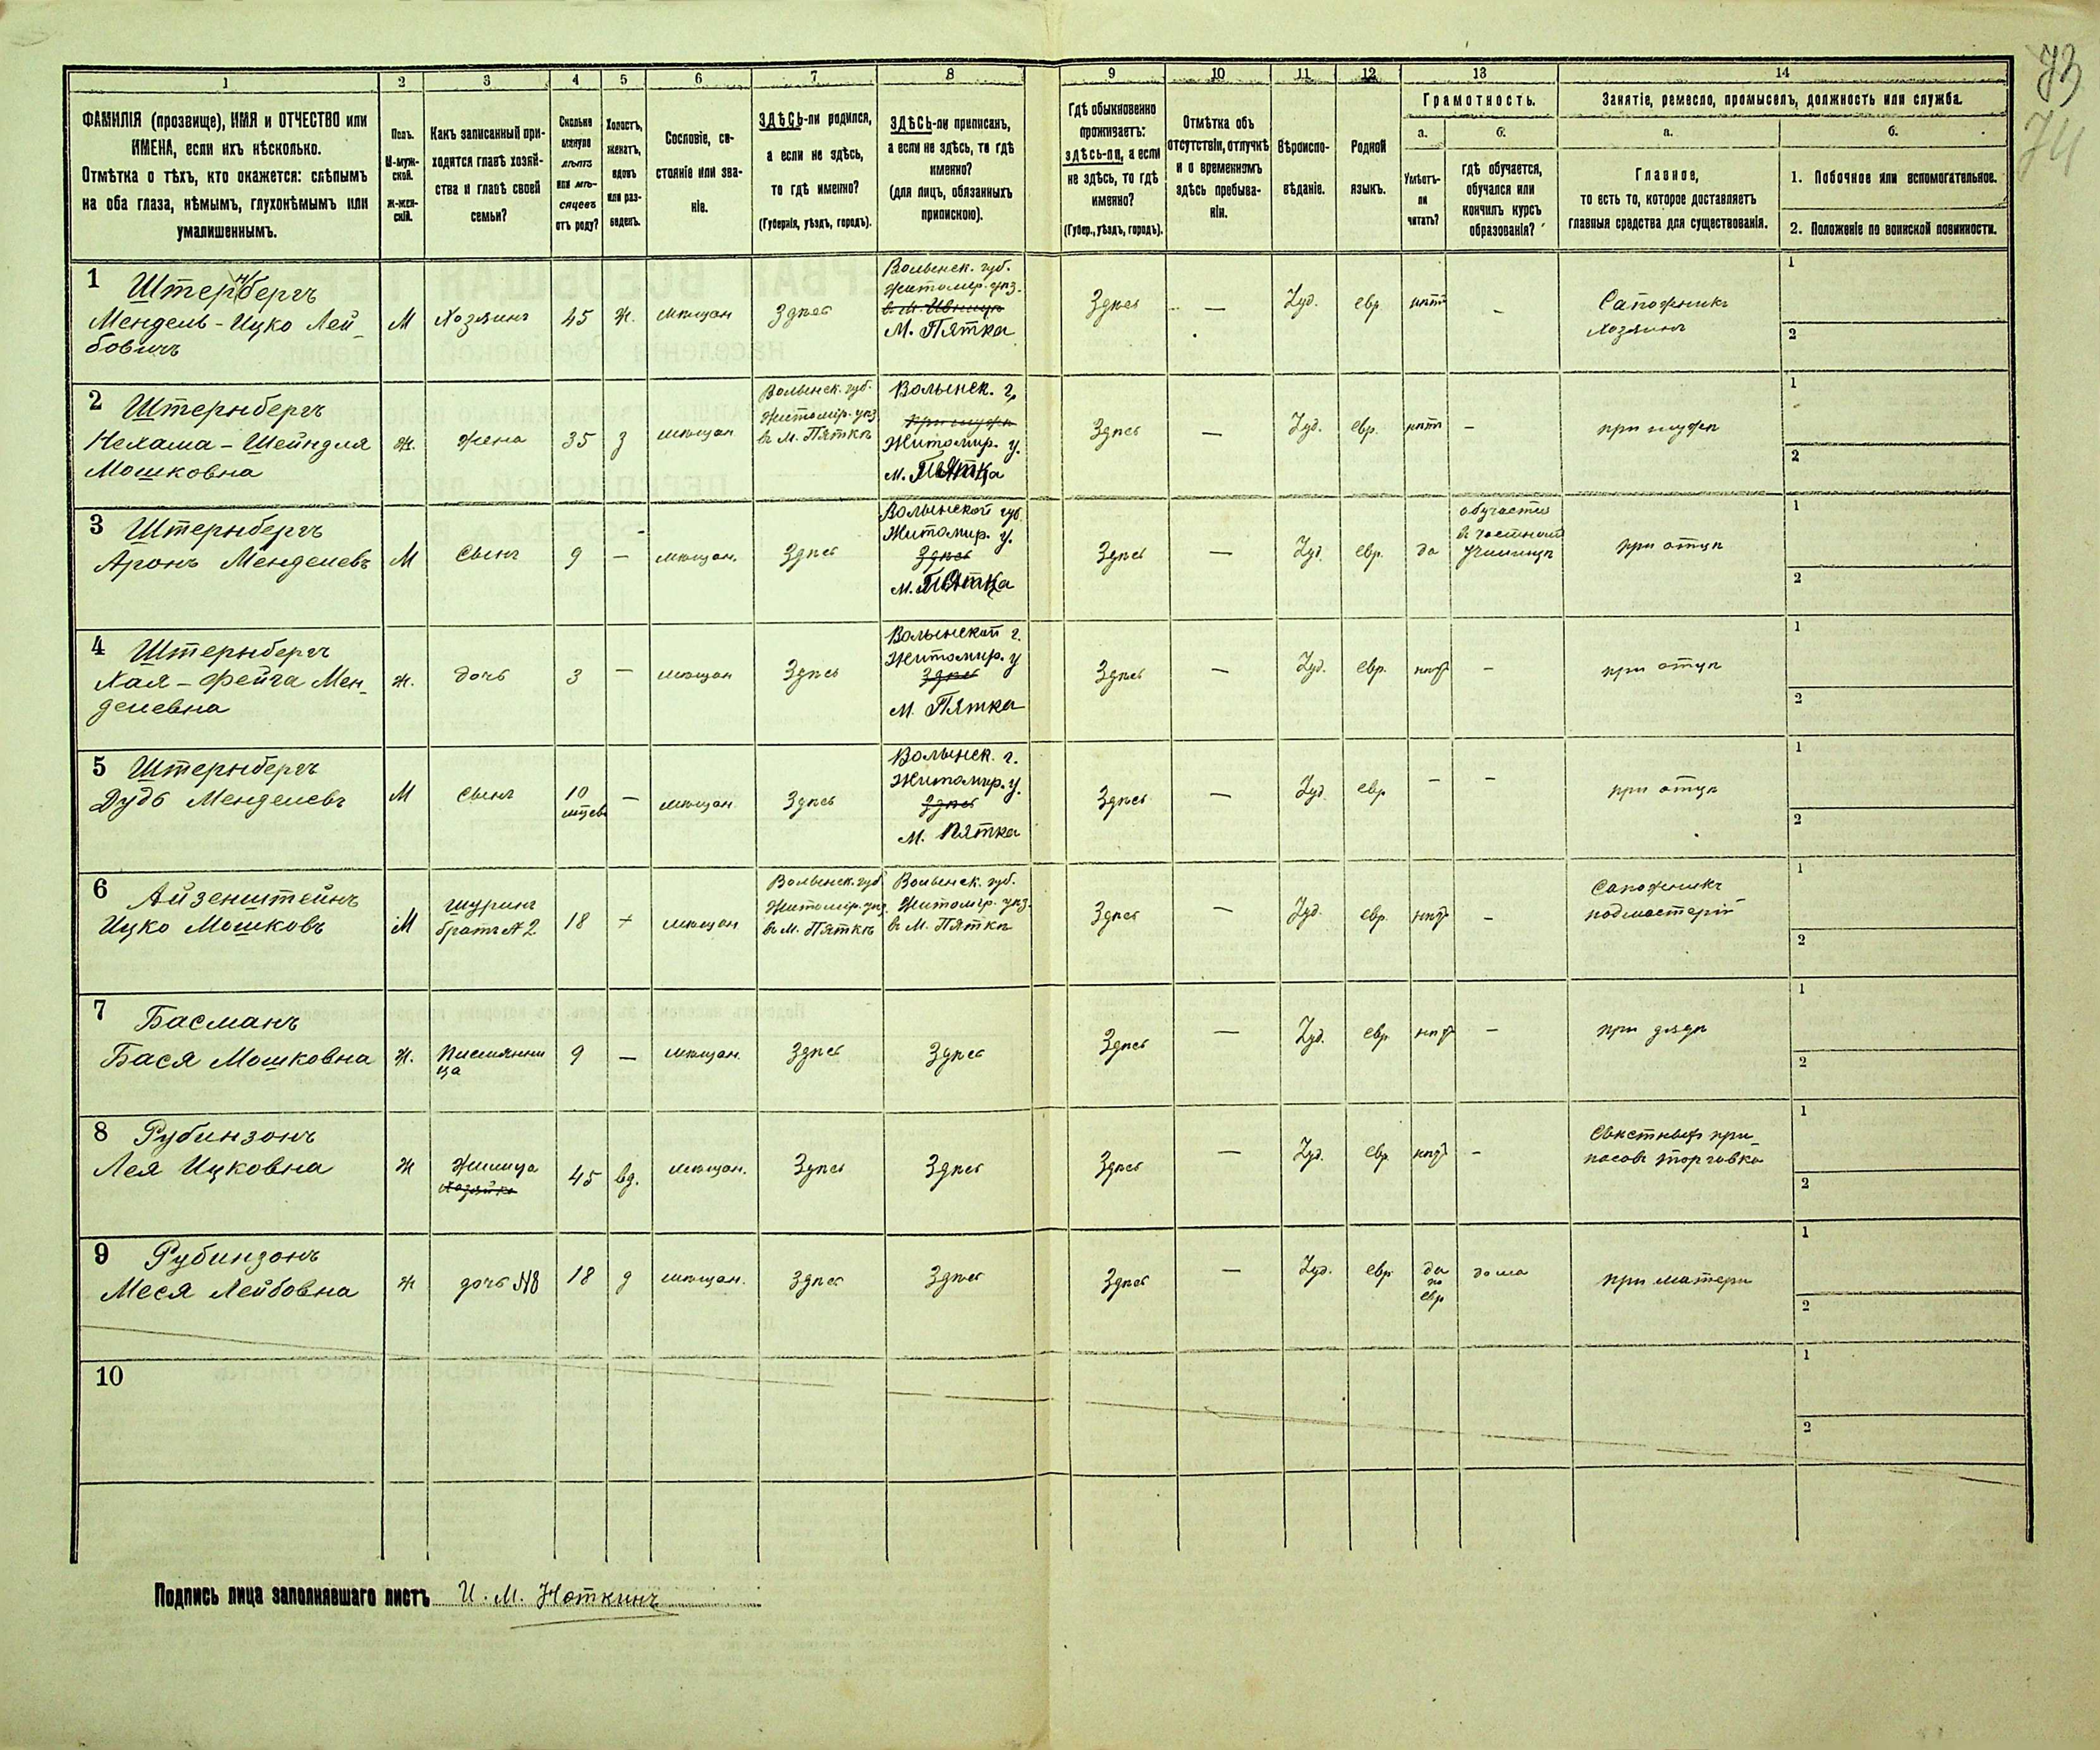 73
74
1 2 3 4 5 6 7 8 9 10 11 12 13 14
ФАМИЛІЯ (прозвище), ИМЯ и ОТЧЕСТВО или
ИМЕНА, если ихъ нѣсколько.
Отмѣтка о тѣхъ, кто окажется: слѣпымъ
на оба глаза, нѣмымъ, глухонѣмымъ или
умалишеннымъ.
Полъ.
М-муж-
ской.
Ж-жен-
скій.
Какъ записанный при-
ходится главѣ хозяй-
ства и главѣ своей
семьи?
Сколько
минуло
лѣтъ
или мѣ-
сяцевъ
отъ роду?
Холостъ,
женатъ,
вдовъ
или раз-
веденъ.
Сословіе, со-
стояніе или зва-
ніе.
ЗДѢСЬ-ли родился,
а если не здѣсь,
то гдѣ именно?
(Губернія, уѣздъ, городъ).
ЗДѢСЬ-ли приписанъ,
а если не здѣсь, то гдѣ
именно?
(для лицъ, обязанныхъ
припискою).
Гдѣ обыкновенно
проживаетъ:
здѣсь-ли, а если
не здѣсь, то гдѣ
именно?
(Губер., уѣздъ, городъ).
Отмѣтка объ
отсутствіи, отлучкѣ
и о временномъ
здѣсь пребыва-
ніи.
Вѣроиспо-
вѣданіе.
Родной
языкъ.
Грамотность.
а. б.
Умѣетъ-
ли
читать?
гдѣ обучается,
обучался или
кончилъ курсъ
образованія?
Занятіе, ремесло, промыселъ, должность или служба.
а. б.
Главное,
то есть то, которое доставляетъ
главныя средства для существованія.
1. Побочное или вспомогательное.
2. Положеніе по воинской повинности.
1 Штернбергъ
Мендель-Ицко Лей-
бовичъ
М
Хозяинъ
45
Ж.
мѣщан
Здѣсь
Волынск. губ.
Житомір. уѣз.
в М. Ивницѣ
М. Пятка
Здѣсь
—
Iуд.
евр
нѣтъ
–
Сапожникъ
хозяинъ
1
2
2 Штернбергъ
Нехама-Шейндля
Мошковна
Ж.
жена
35
З
мѣщан
Волынск. губ.
Житомір. уѣз
въ М. Пяткѣ
Волынск. г.
при мужѣ
Житомир. у.
М. Пятка
Здѣсь
—
Iуд.
евр.
нѣтъ
–
при мужѣ
1
2
3 Штернбергъ
Аронъ Менделевъ
М
Сынъ
9
—
мѣщан.
Здѣсь
Волынской губ
Житомир. у.
Здѣсь
М. Пятка
Здѣсь
—
Iуд.
евр.
да
обучается
въ частном
училищѣ
при отцѣ
1
2
4 Штернбергъ
Хая-Фейга Мен-
делевна
Ж.
дочь
3
—
мѣщан
Здѣсь
Волынской г.
Житомир. у
Здѣсь
М. Пятка
Здѣсь
—
Iуд.
евр.
нѣтъ
–
при отцѣ
1
2
5 Штернбергъ
Дудь Менделевъ
М
Сынъ
10
мѣсев
—
мѣщан
Здѣсь
Волынск. г.
Житомир. у.
Здѣсь
М. Пятка
Здѣсь
—
Iуд.
евр
–
–
при отцѣ
1
2
6 Айзенштейнъ
Ицко Мошковъ
М
Шуринъ
братъ № 2
18
мѣщан
Волынск. губ
Житомір. уѣз.
въ М. Пяткѣ
Волынск. губ.
Житомір. уѣз.
въ М. Пяткѣ
Здѣсь
—
Iуд.
евр.
нѣтъ
–
Сапожникъ
подмастерій
1
2
7 Басманъ
Бася Мошковна
Ж.
Племянни
ца
9
—
мѣщан.
Здѣсь
Здѣсь
Здѣсь
—
Iуд.
евр
нѣтъ
–
при дядѣ
1
2
8 Рубинзонъ
Лея Ицковна
Ж
Жилица
Хозяйка
45
вд.
мѣщан.
Здѣсь
Здѣсь
Здѣсь
—
Iуд.
евр.
нѣтъ
–
Съѣстныхъ при-
пасовъ торговка
1
2
9 Рубинзонъ
Меся Лейбовна
Ж
дочь №8
18
д
мѣщан.
Здѣсь
Здѣсь
Здѣсь
—
Iуд.
евр
да
по
евр
дома
при матери
1
2
10
1
2
Подпись лица заполнявшаго листъ И. М. Ноткинъ